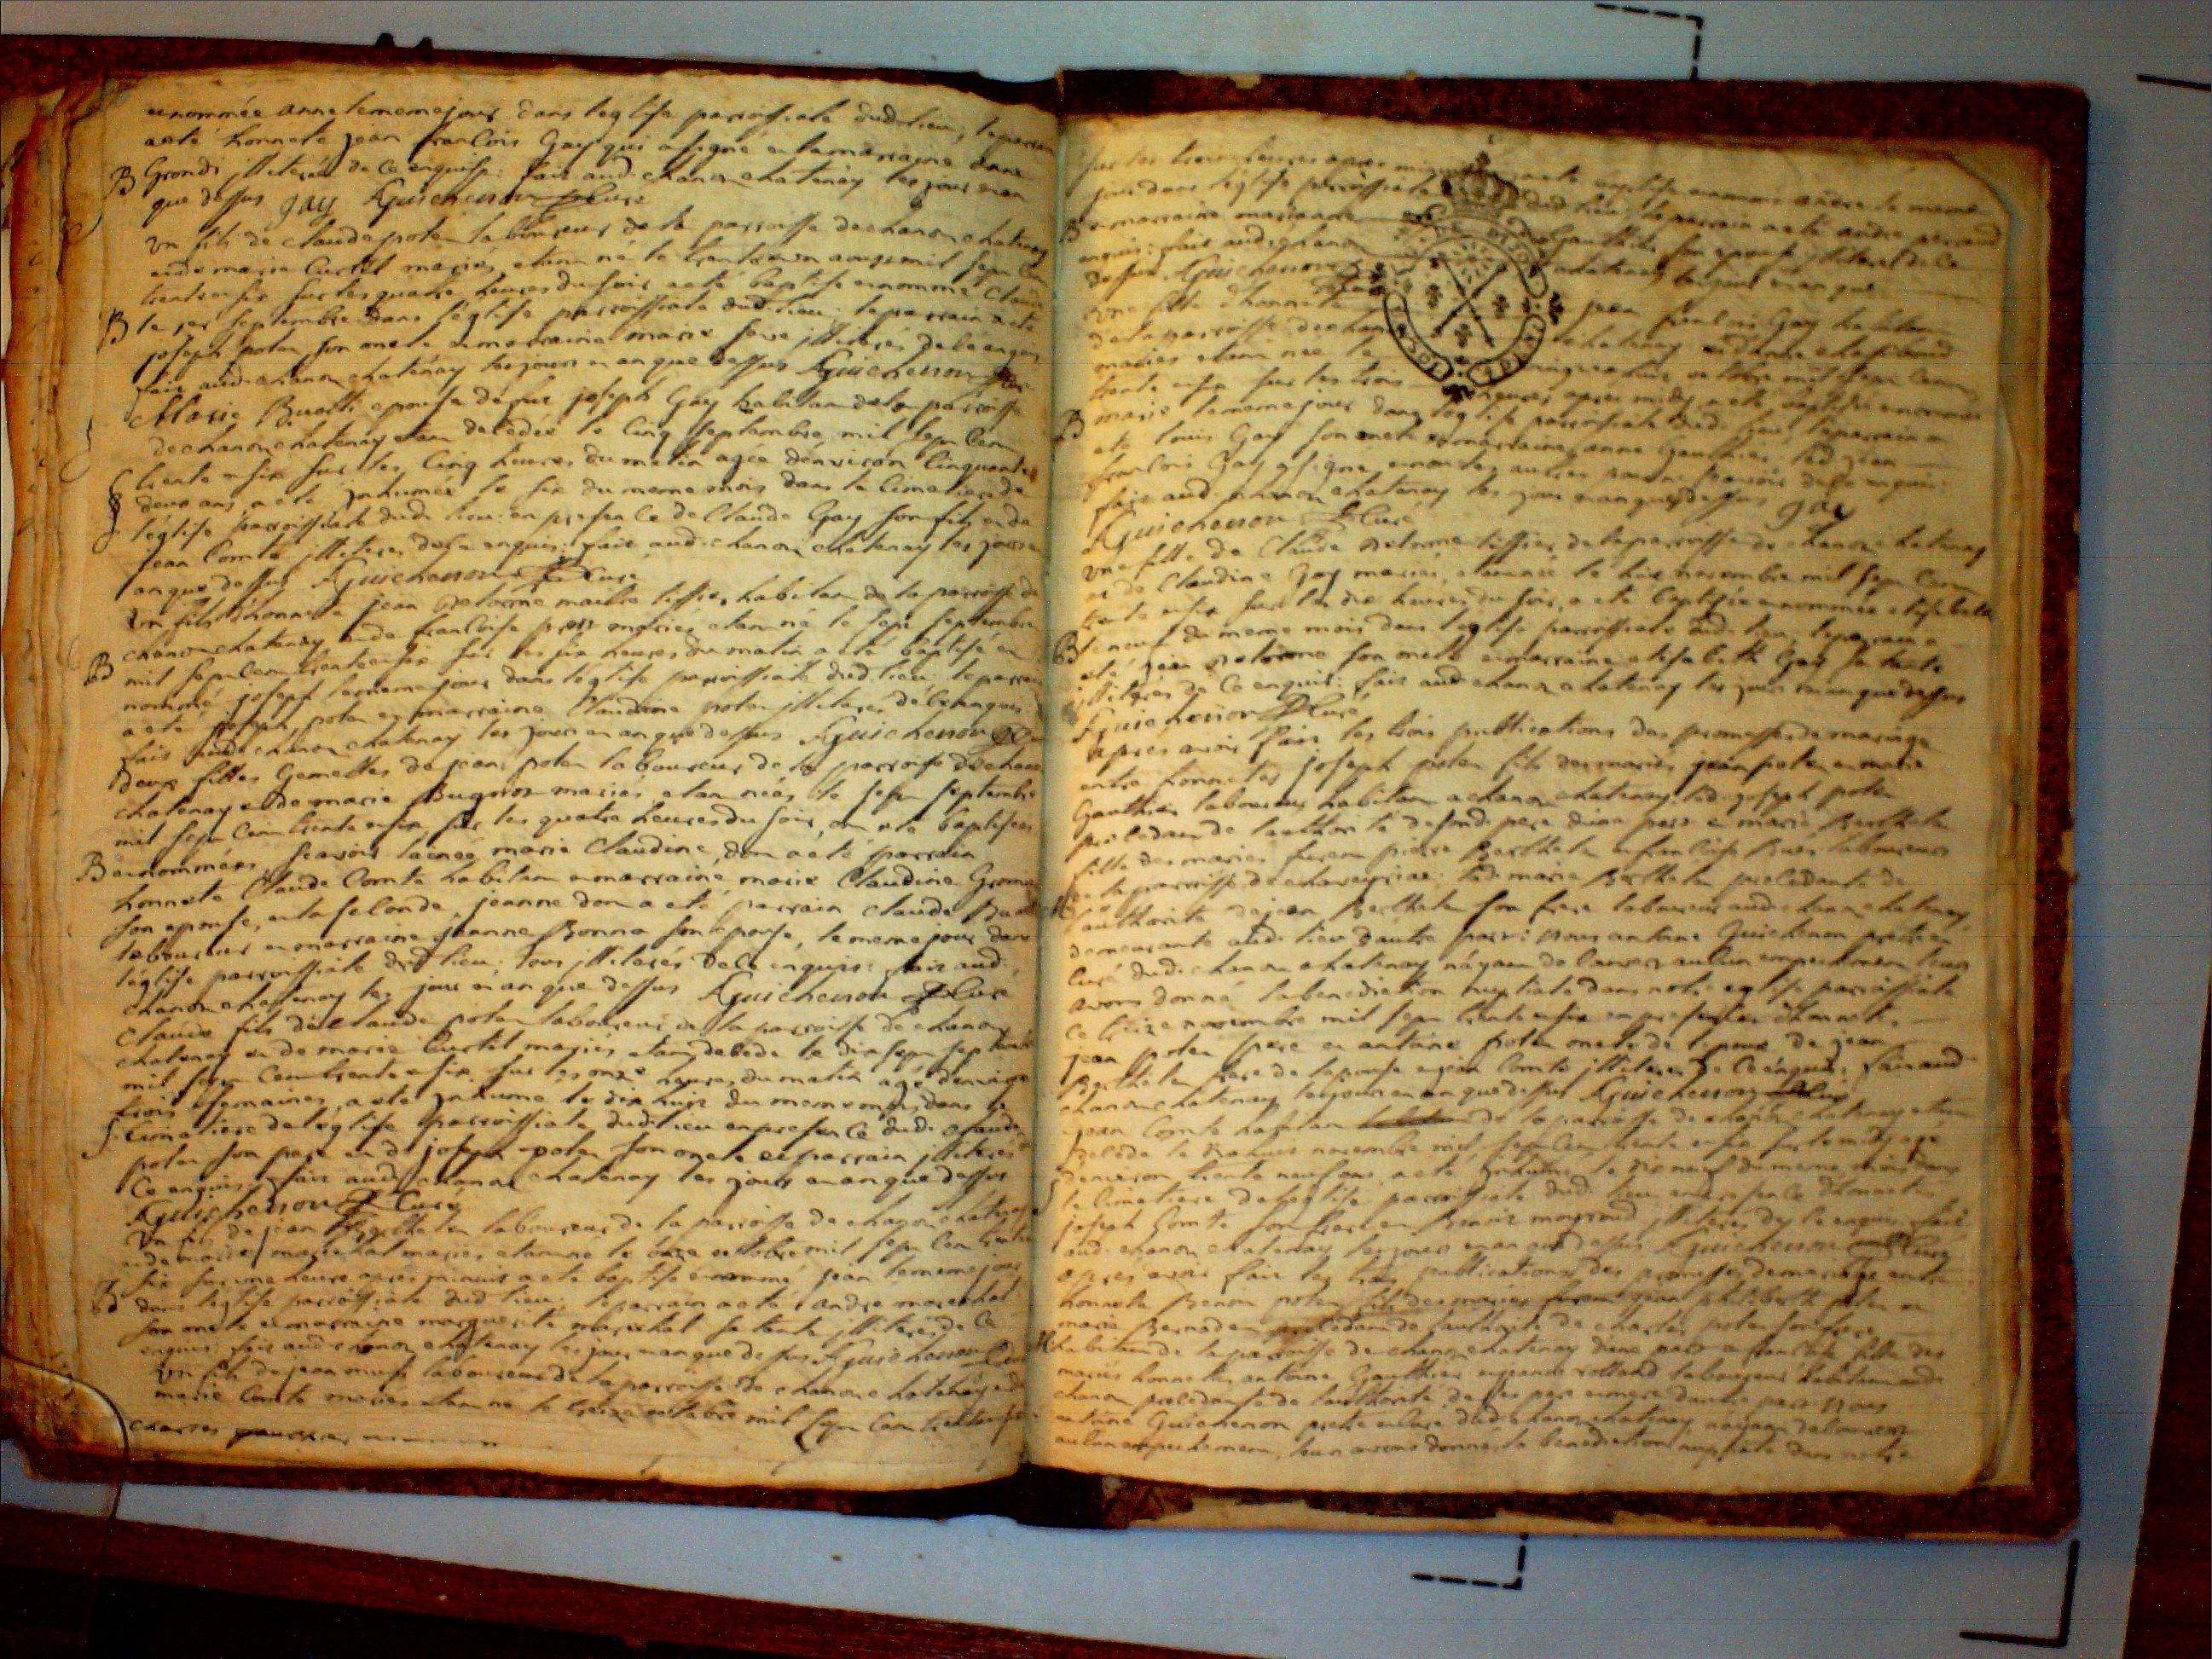 et nommée anne le meme jour dans leglise parroissiale dud. lieu, le parrain
a eté honneté jean francois Gay qui a signé et la marraine
B Grondi illiterée de ce enquise: fait aud. chanoz chatenay les jour et an
que dessus gay AGuichenon Curé
un fils de claude poten laboureur de la parroisse de chanoz chatenay
et de marie Curtil mariés, etant né le trente et un aoust mil sept cent
trente et six sur les quatre heures du soir a eté baptisé et nommé Claude
B le 1er septembre dans l'église parroissiale dud. lieu: le parrain a eté
joseph poten son oncle et marraine marie illiterés de ce enquis:
fait aud. chanoz chatenay les jour et an que dessus AGuichenon Curé
Marie Buatti epouse de feu joseph Gay habitan de la parroisse
de chanoz chatenay etant decedée le cinq septembre mil sept cent
S trente et six sur les cinq heures du matin agée d'environ cinquante
deux ans, a eté inhumée le six du meme mois dans le cimetiere de
l'église parroissiale dud. lieu: en presence de Claude Gay son fils et de
jean Comte illiteres de ce enquis: fait aud. chanoz chatenay les jour et
an que dessus AGuichenon Curé
un fils d'honneté jean Delorme maitre tissier habitan de la parroisse de
chanoz chatenay et de francoise mariés etant né le sept septembre
B mil sept cent trente et six sur les six heures du matin a eté baptisé et
nommé joseph le meme jour dans l'église parroissiale dud. lieu: le parrain
a eté joseph poten et marraine Claudine poten illiteres de ce enquis:
fait aud. chanoz chatenay les jour et an que dessus AGuichenon
deux filles Gemelles de jean poten laboureur de la parroisse de chanoz
chatenay et de marie Bugnon mariés etant nées le sept septembre
mil sept cent trente et six, sur les quatre heures du soir, ont eté baptisées
B et nommées, scavoir lainée marie Claudine, dont a eté parrain
honneté Claude Comte habitan et marraine marie Claudine
son epouse, et la seconde, jeanne dont a eté parrain claude
laboureur et marraine jeanne Bonna son epouse, le meme jour dans
l'église parroissiale dud. lieu: tous illiterés de ce enquis: fait aud.
chanoz chatenay les jour et an que dessus AGuichenon Curé
Claude fils de claude poten laboureur de la parroisse de chanoz
chatenay et de marie Curtil mariés etant decedé le dix sept septembre
mil sept cent trente et six sur les onze heures du matin agé d'environ
trois semaines, a eté inhumé le dix huit du meme mois, dans le
S cimetiere de l'église parroissiale dud. lieu en presence dud. claude
poten son pere et de joseph poten son oncle et parrain illiteres
ce enquis, fait aud. chanoz chatenay les jour et an que dessus
AGuichenon Curé
un fils de jean Berthelet laboureur de la parroisse de chanoz chatenay
et de marie marechal mariés etant né le onze octobre mil sept cent trente
six sur une heure apres minuit a eté baptisé et nommé jean le meme jour
B dans l'église parroissiale dud. lieu: le parrain a eté andre marechal
son oncle et marraine marguerite marechal sa tante illiteres de ce
enquis: fait aud. chanoz chatenay les jour et an que dessus AGuichenon Curé
un fils de jean laboureur de la parroisse de chanoz chatenay et de
marie Comte mariés etant né le treize octobre mil sept cent trente et six
sur les heures apres minuit a eté baptisé et nommé andre le meme
jour dans l'église parroissiale dud. lieu: le parrain a eté andre perraud
B et marraine marianne Gauthier son epouse illiteres de ce
enquis: fait aud. chanoz chatenay les jour et an que
dessus AGuichenon
une fille d'honneté jean francois Gay habitan
de la parroisse de chanoz chatenay et d'anne
mariés etant née le octobre mil sept cent
trente et six sur les trois heures apres midy a eté baptisée et nommée
B marie le meme jour dans l'église parroissiale dud. lieu: le parrain a
eté louis Gay son oncle et marraine anne Gauthier: led. jean
francois Gay a signé, et non les autres pour ne scavoir de ce enquis:
fait aud. chanoz chatenay les jour et an que dessus gay
AGuichenon Curé
une fille de Claude Delorme tissier de la parroisse de chanoz chatenay
et de Claudine Gay mariés, etant née le huit novembre mil sept cent
trente et six sur les dix heures du soir, a eté baptisée et nommée elisabeth
B le neuf du meme mois dans l'église parroissiale dud. lieu, le parrain a
eté jean Delorme son oncle et marraine elisabeth Gay sa tante
illiteres de ce enquis: fait aud. chanoz chatenay les jour et an que dessus
AGuichenon Curé
apres avoir fait les trois publications des promesses de mariage
entre honnetes joseph poten fils des mariés jean poten et marie
Gauthier laboureur habitan a chanoz chatenay: led. joseph poten
procedant de l'authorité de sond. pere d'une part et marie Berthelet
fille des mariés furent pierre Berthelet et francoise laboureurs
de la parroisse de: lad. marie Berthelet procedante de
M l'authorité de jean Berthelet son frere laboureur aud. chanoz chatenay
demeurante aud. lieu d'autre part: nous antoine Guichenon pretre et
curé dud. chanoz chatenay n'ayant decouvert aucun empechement leur
avons donné la benediction nuptiale dans notre eglise parroissiale
ce treize novembre mil sept trente et six en presence d'honnetes
jean poten pere et antoine poten oncle de l'epoux de jean
Berthelet frere de l'epouse et jean Comte illiteres de ce enquis: fait aud.
chanoz chatenay les jour et an que dessus AGuichenon Curé
jean Comte habitan de la parroisse de chanoz chatenay etant
decedé le dix huit novembre mil sept cent trente et six sur le midy agé
d'environ trente neuf ans, a eté inhumé le dix neuf du meme mois dans
S le cimetiere de l'église parroissiale dud. lieu en presence d'honnetes
joseph Comte son frere et Benoit illiteres de ce enquis: fait
aud. chanoz chatenay les jour et an que dessus AGuichenon Curé
apres avoir fait les trois publications des promesses de mariage entre
honnetes Benoit poten fils des mariés furent jean philibert poten et
marie Bernaden procedant de l'authorité de charles poten son frere
M habitan de la parroisse de chanoz chatenay d'une part et fille des
mariés honnetes antoine Gauthier et jeanne rolland laboureurs habitan aud.
chanoz procedante de l'authorité de ses pere et mere d'autre part: nous
antoine Guichenon pretre et curé dud. chanoz chatenay n'ayant decouvert
aucun empechement, leur avons donné la benediction nuptiale dans notre